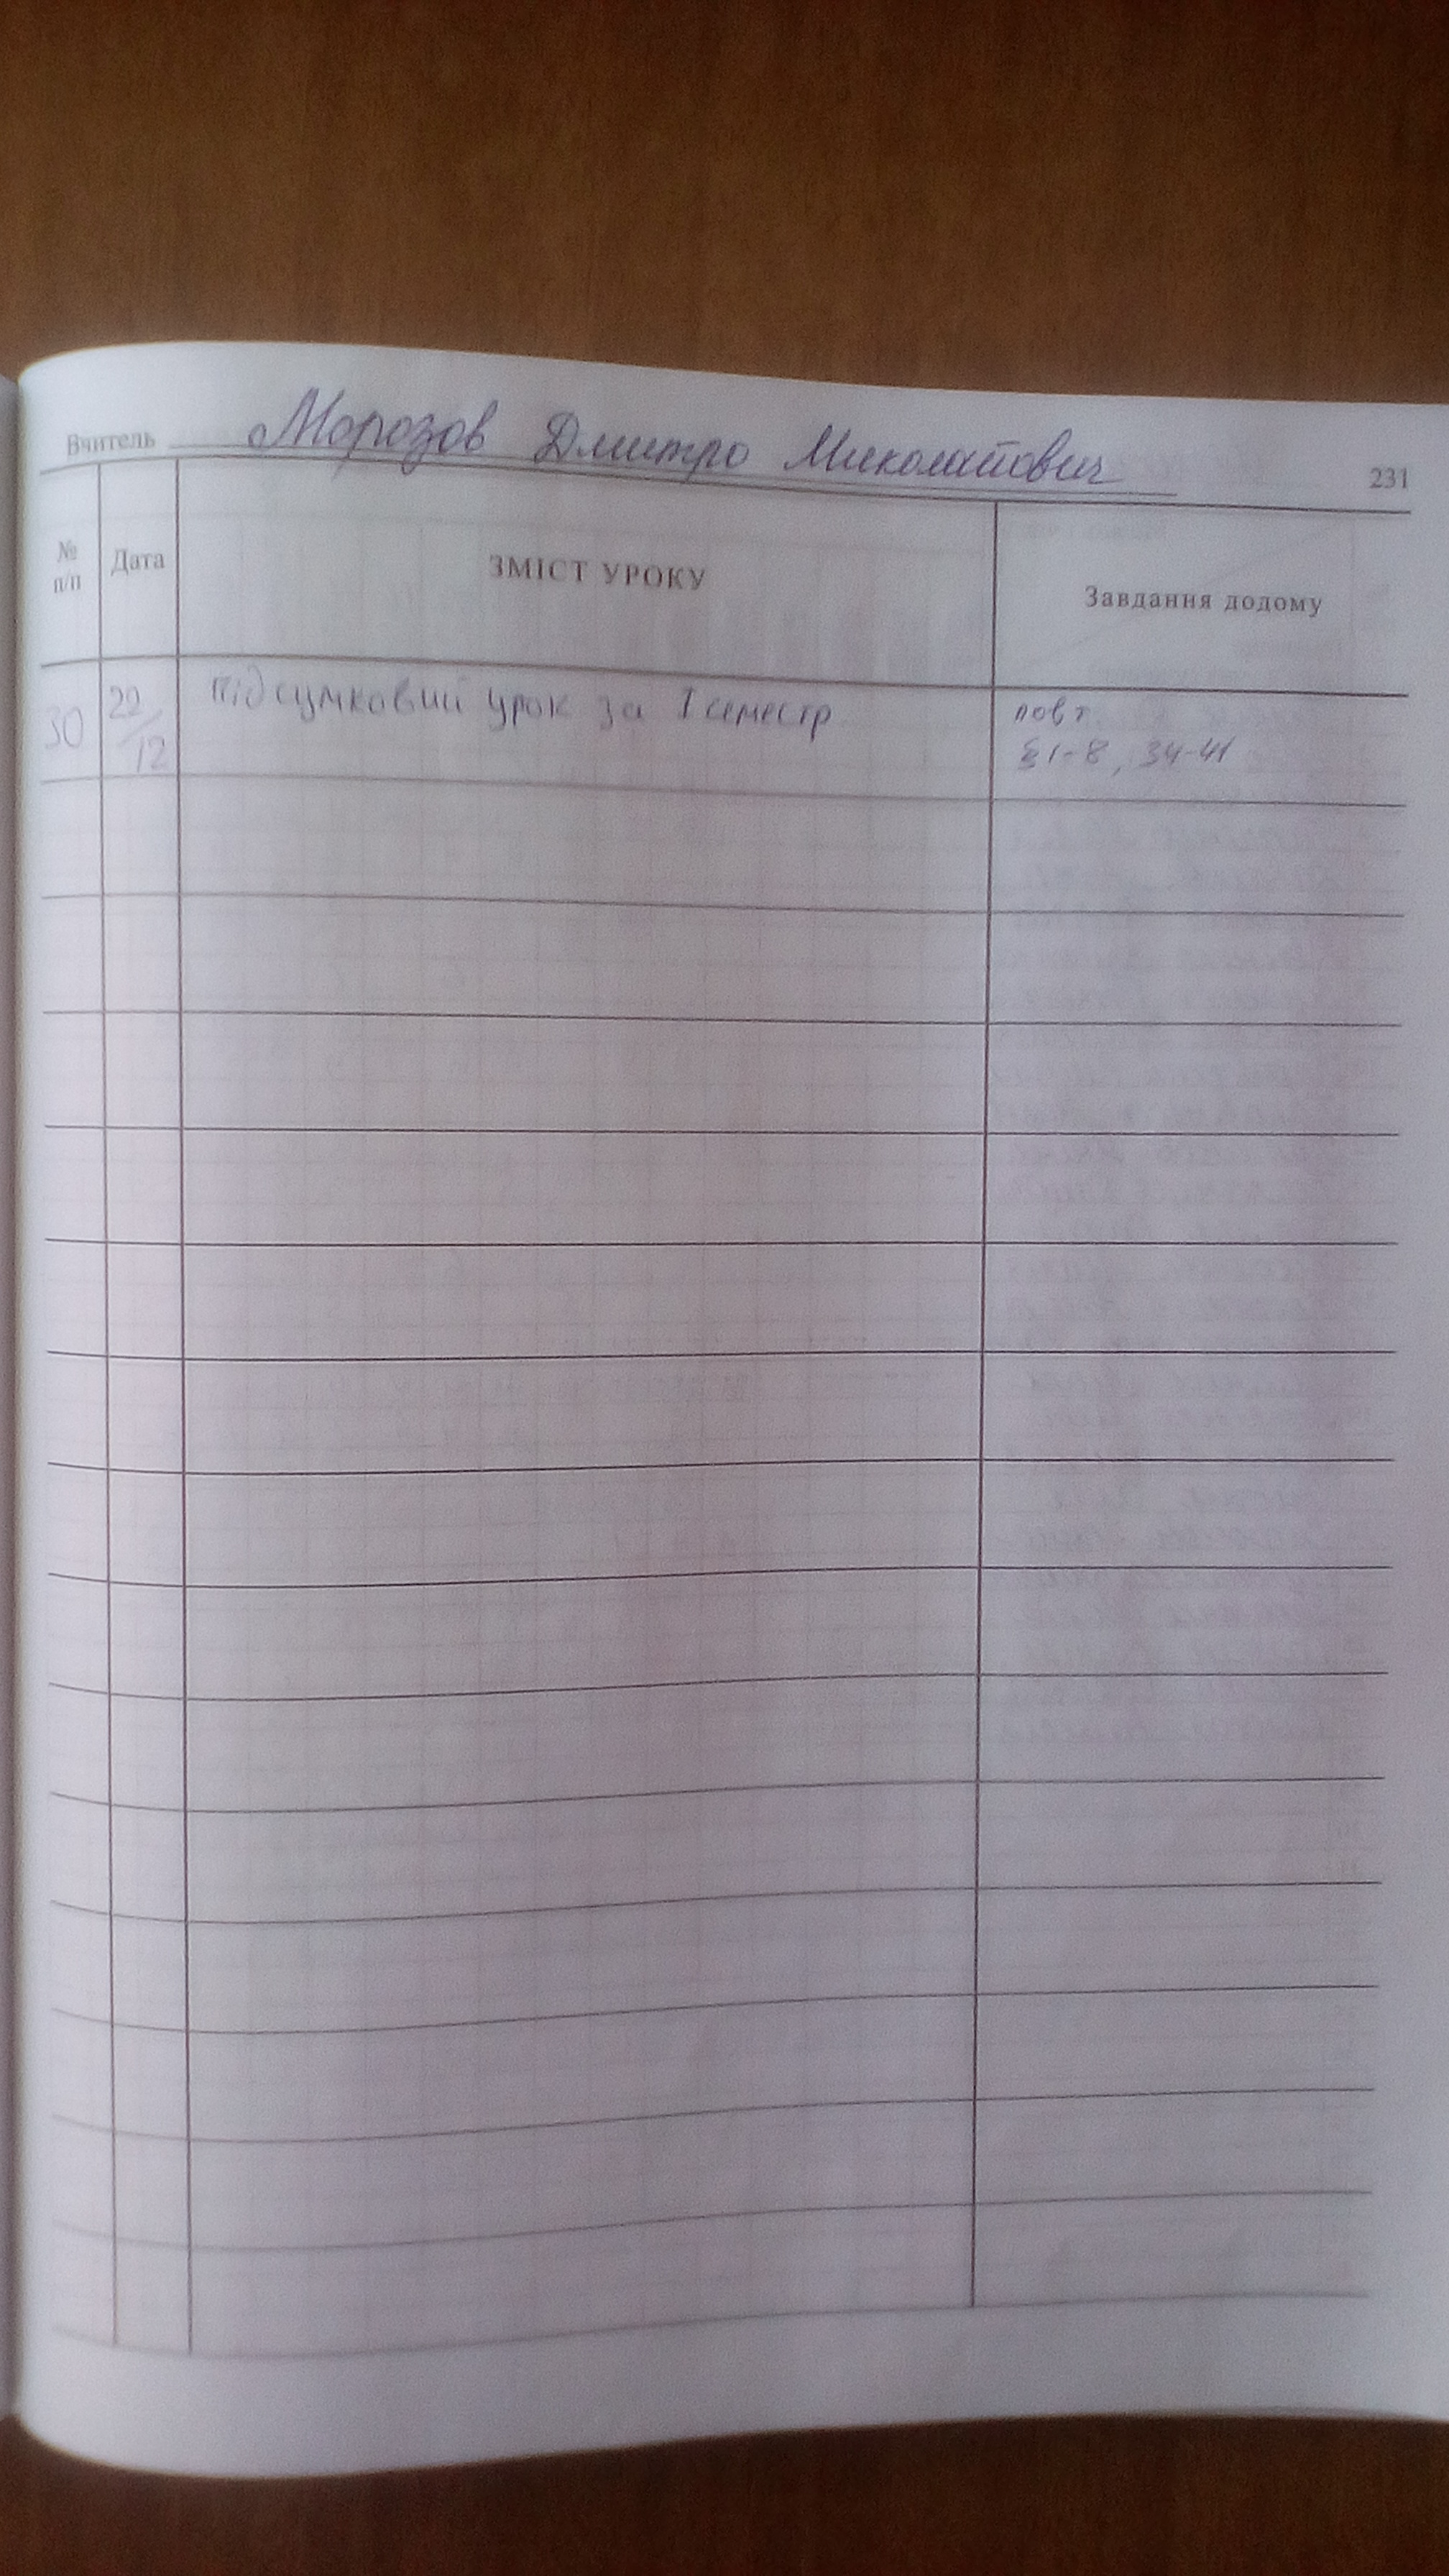 Вчитель Морозов Дмитро Миколайович
231
№ п/п Дата ЗМІСТ УРОКУ Завдання додому
30 22/12 Підсумковий урок за І семестр повт
§1-8, 34-41